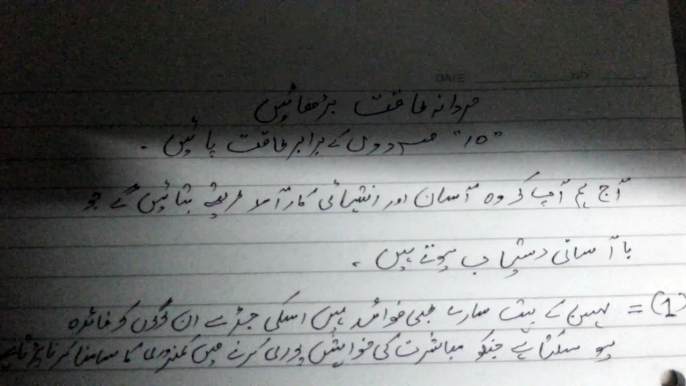 DATE
مردانہ طاقت بڑھائیں
"10" مردوں کے برابر طاقت پائیں ۔
آج ہم آپ کو وہ آسان اور انتہائی کارآمد طریقے بتائیں گے جو
باآسانی دستیاب ہوتے ہیں ۔
(1) = لہسن کے بہت سارے طبی فوائد ہیں اسکی جڑ سے ان لوگوں کو فائدہ
ہو سکتا ہے جنکو مباشرت کی خواہش پوری کرنے میں کمزوری کا سامنا کرنا پڑتا ہے